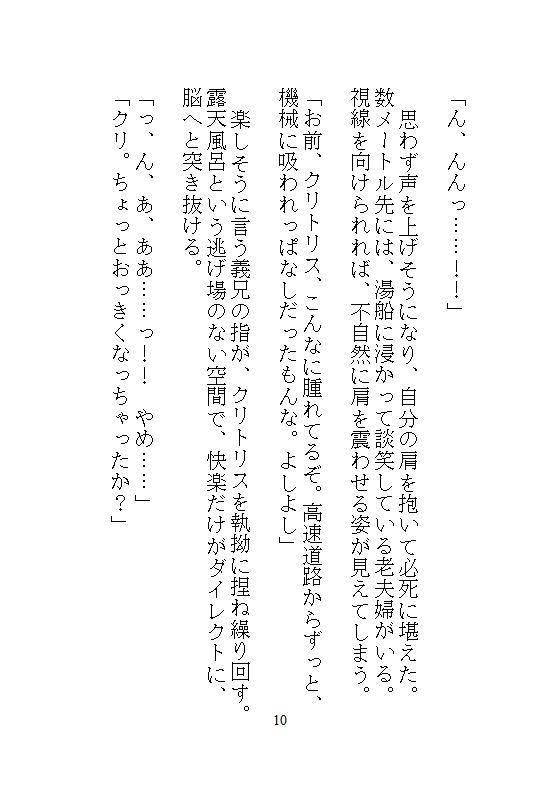 「ん、んんっ……！！」
　思わず声を上げそうになり、自分の肩を抱いて必死に堪えた。
数メートル先には、湯船に浸かって談笑している老夫婦がいる。
視線を向けられれば、不自然に肩を震わせる姿が見えてしまう。
「お前、クリトリス、こんなに腫れてるぞ。高速道路からずっと、
機械に吸われっぱなしだったもんな。よしよし」
　楽しそうに言う義兄の指が、クリトリスを執拗に捏ね繰り回す。
露天風呂という逃げ場のない空間で、快楽だけがダイレクトに、
脳へと突き抜ける。
「っ、ん、あ、ああ……っ！！　やめ……」
「クリ。ちょっとおっきくなっちゃったか？」
10